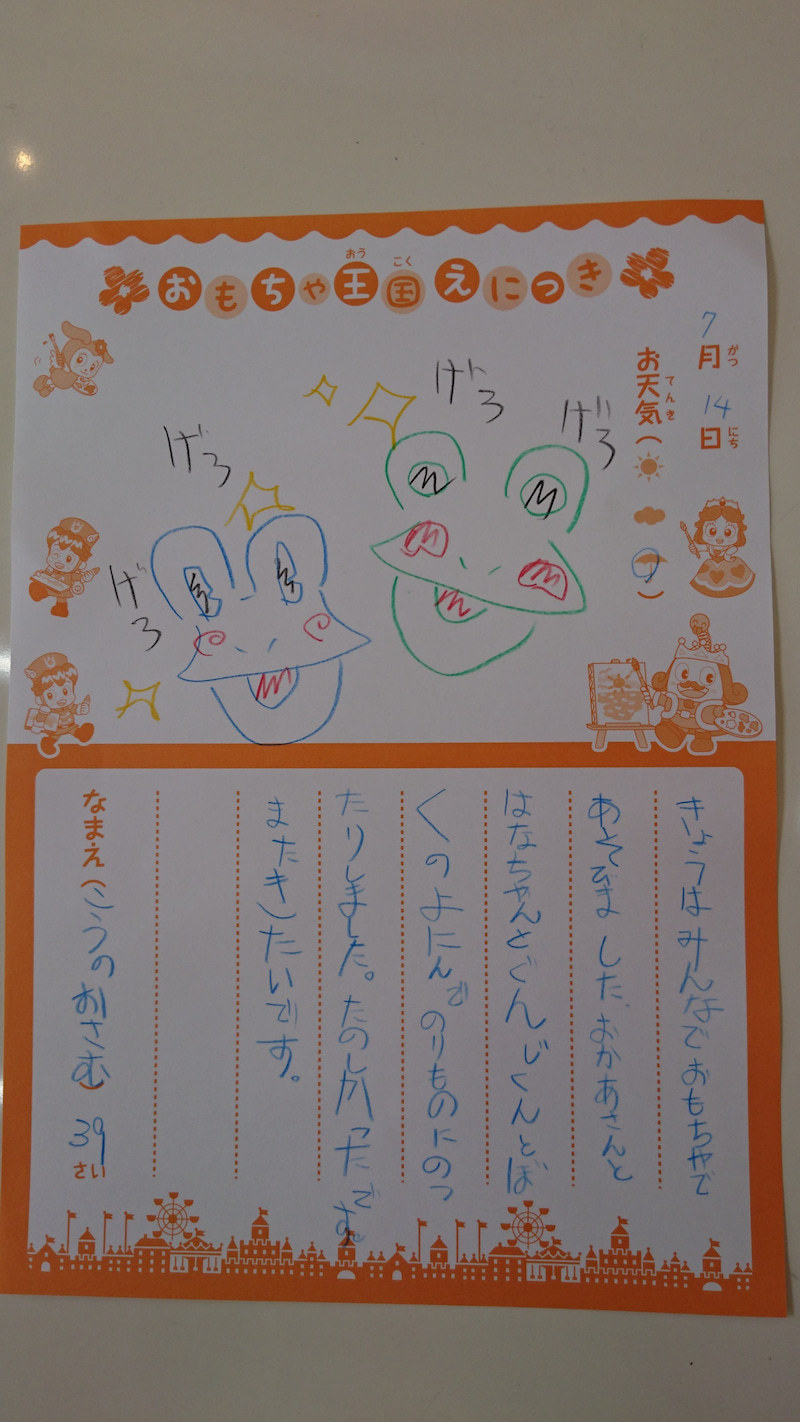 おもちゃ王国えにっき
おう
こく
7月14日
がつ
にち
お天気（ ）
てんき
げろ
げろ
げろ
げろ
きょうはみんなでおもちゃで
あそびました、おかあさんと
はなちゃんとぐんじくんとぼ
くのよにんでのりものにのっ
たりしました。たのしかったです。
またきしたいです。
なまえ（こうのおさむ）39さい